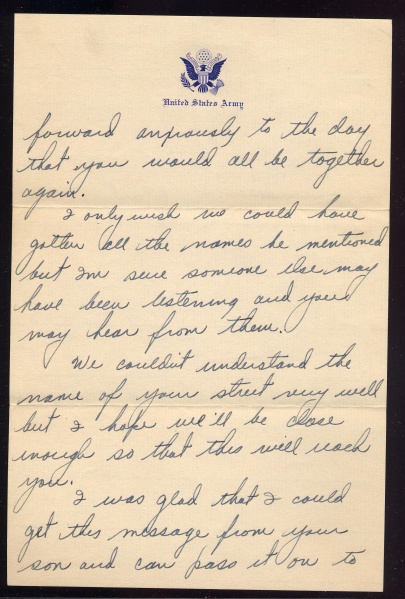 United States Army
forward anxiously to the day
that you would all be together
again.
I only wish we could have
gotten all the names he mentioned
but I'm sure someone else may
have been listening and you
may hear from them.
We couldn't understand the
name of your street very well
but I hope we'll be close
enough so that this will reach
you.
I was glad that I could
get this message from your
son and can pass it on to